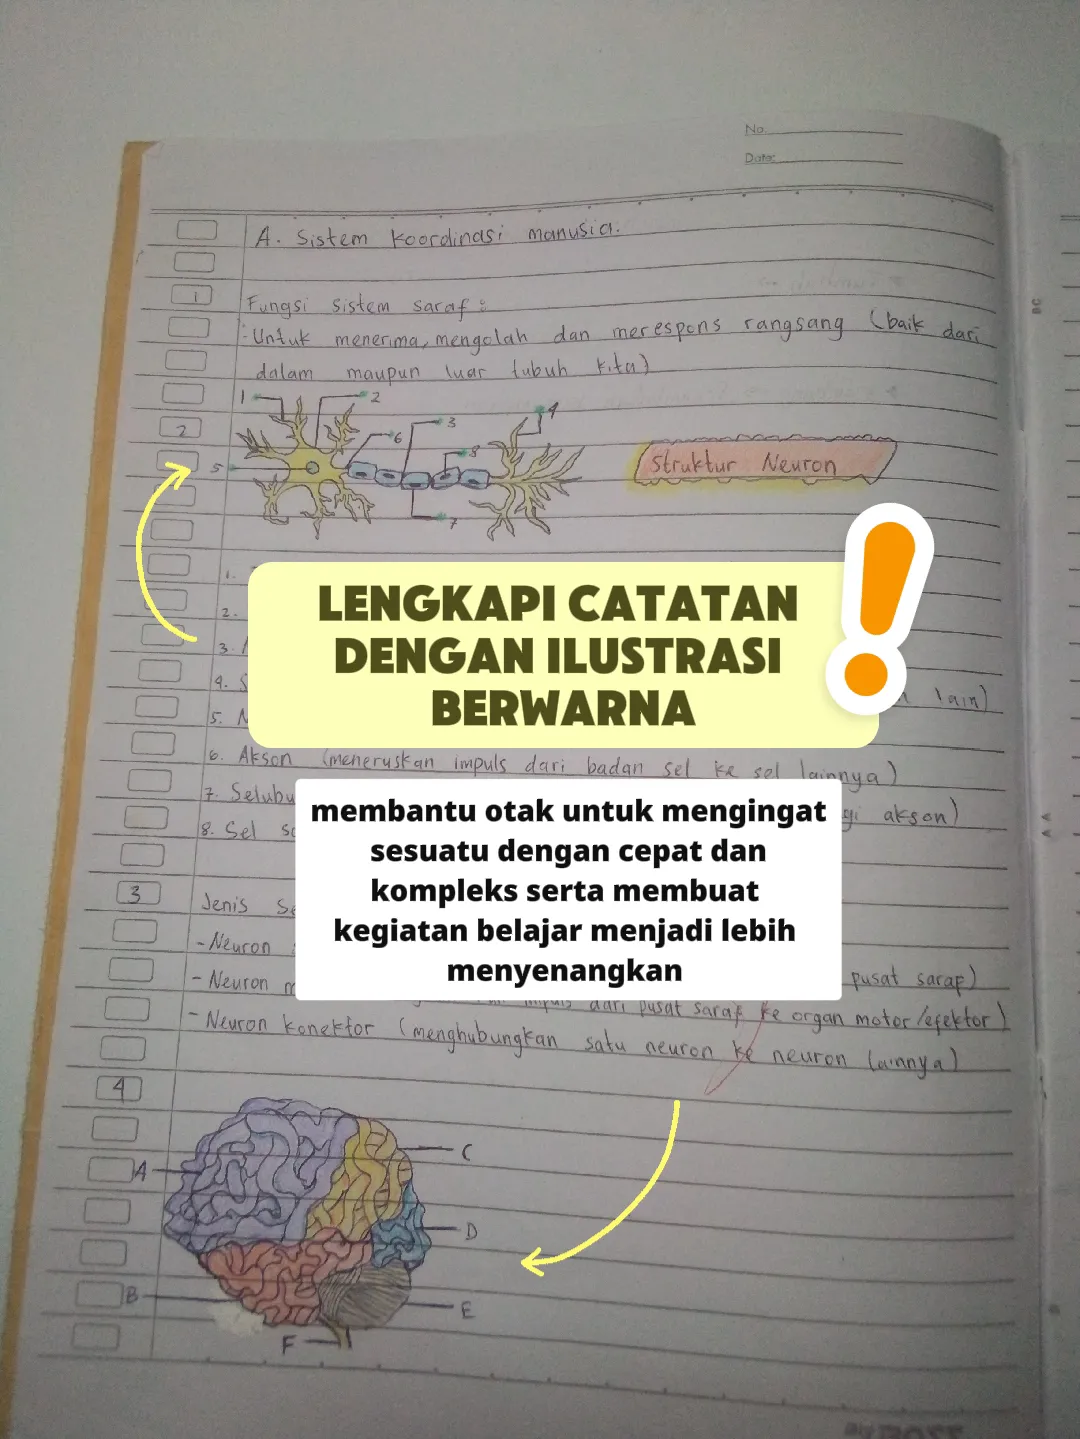 No.
Date:
A. Sistem Koordinasi manusia.
1 Fungsi sistem saraf :
- Untuk menerima, mengolah dan merespons rangsang (baik dari
dalam maupun luar tubuh kita)
1
2
3
4
2
6
8
5
7
Struktur Neuron
1.
2.
3.
4. S
lain)
5. N
LENGKAPI CATATAN
DENGAN ILUSTRASI
BERWARNA
6. Akson (meneruskan impuls dari badan sel ke sel lainnya)
7. Selubu
gi akson)
8. Sel sc
membantu otak untuk mengingat
sesuatu dengan cepat dan
kompleks serta membuat
kegiatan belajar menjadi lebih
menyenangkan
3 Jenis Se
- Neuron
- Neuron m
pusat saraf)
impuls dari pusat saraf ke organ motor/efektor)
- Neuron konektor (menghubungkan satu neuron ke neuron lainnya)
4
A
C
D
B
E
F